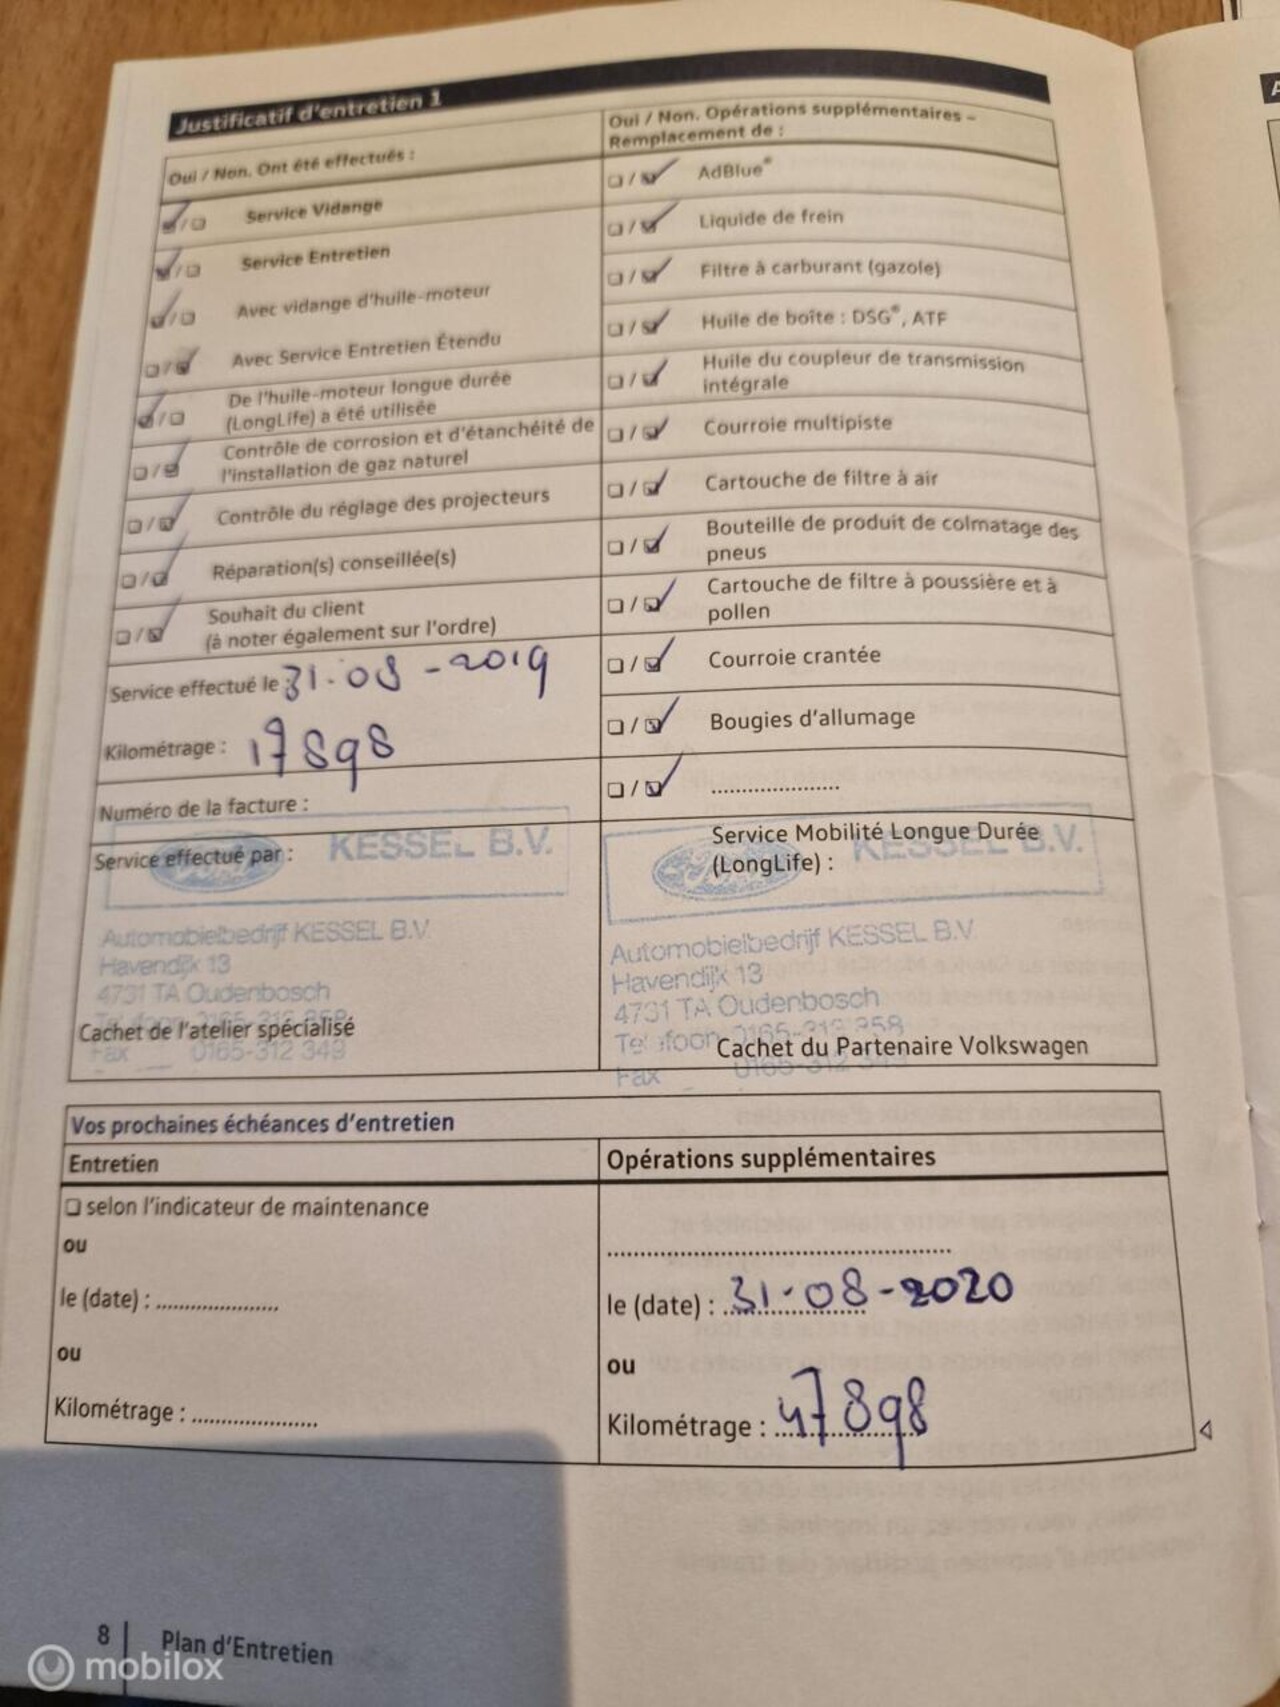 Justificatif d'entretien 1
Oui / Non. Ont été effectués :
Service Vidange
Service Entretien
Avec vidange d'huile-moteur
Avec Service Entretien Étendu
De l'huile-moteur longue durée
(LongLife) a été utilisée
Contrôle de corrosion et d'étanchéité de
l'installation de gaz naturel
Contrôle du réglage des projecteurs
Réparation(s) conseillée(s)
Souhait du client
(à noter également sur l'ordre)
Service effectué le : 31-08-2019
Kilométrage : 17898
Numéro de la facture :
Service effectué par :
KESSEL B.V.
Automobielbedrijf KESSEL B.V.
Havendijk 13
4731 TA Oudenbosch
Cachet de l'atelier spécialisé
Fax 0165-312 349
Oui / Non. Opérations supplémentaires –
Remplacement de :
AdBlue®
Liquide de frein
Filtre à carburant (gazole)
Huile de boîte : DSG®, ATF
Huile du coupleur de transmission
intégrale
Courroie multipiste
Cartouche de filtre à air
Bouteille de produit de colmatage des
pneus
Cartouche de filtre à poussière et à
pollen
Courroie crantée
Bougies d'allumage
....................
Service Mobilité Longue Durée
(LongLife) :
KESSEL B.V.
Automobielbedrijf KESSEL B.V.
Havendijk 13
4731 TA Oudenbosch
Telefoon 0165-312 858
Cachet du Partenaire Volkswagen
Fax
Vos prochaines échéances d'entretien
Entretien
selon l'indicateur de maintenance
ou
le (date) : ....................
ou
Kilométrage : ....................
Opérations supplémentaires
..................................................
le (date) : 31-08-2020
ou
Kilométrage : 47898
8 | Plan d'Entretien
mobilox